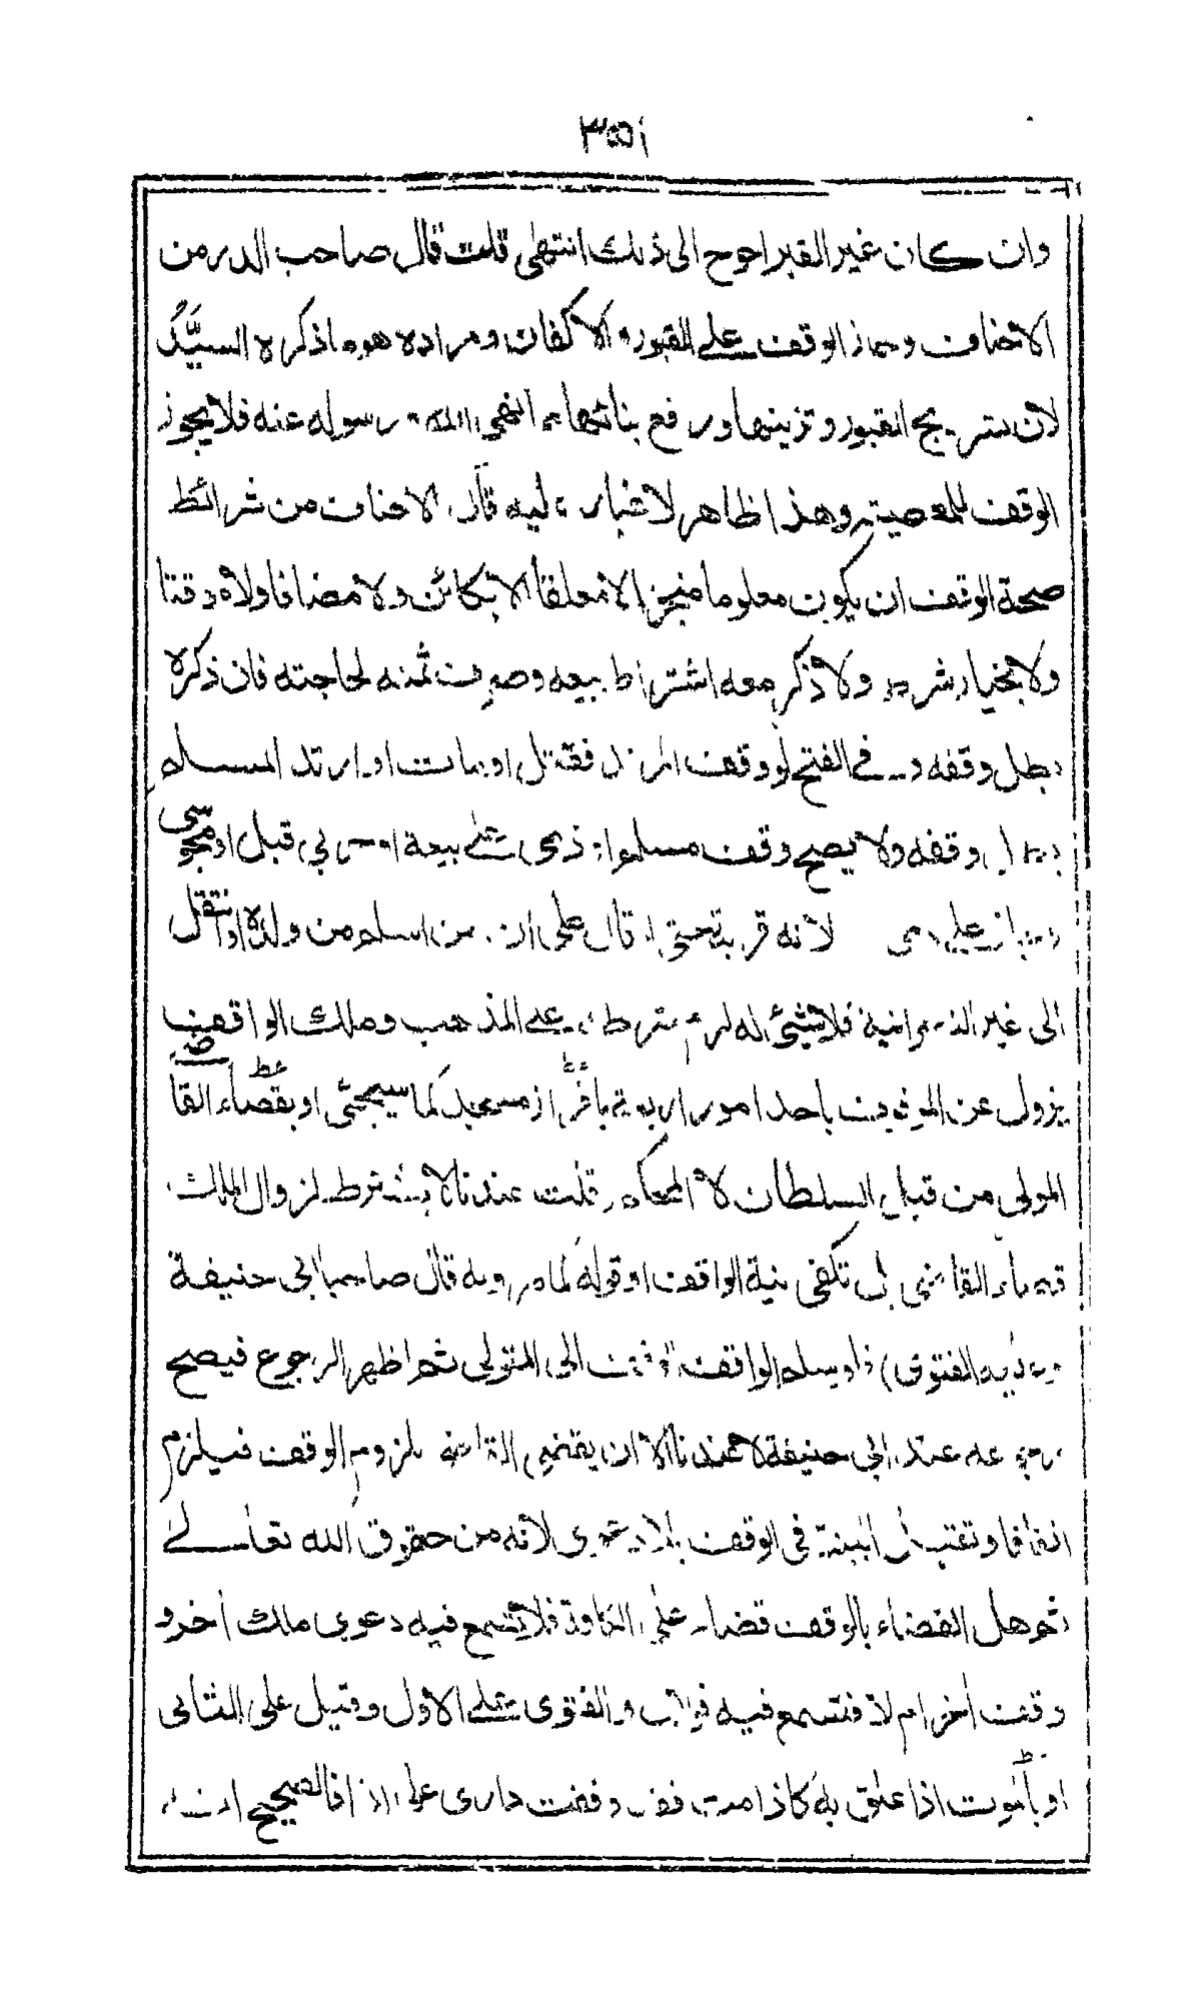 وان كان غير القبر احوج الى ذلك انتهى قلت قال صاحب الدر من
الاحناف وجاز الوقف على القبور والاكفان ومراده هو ما ذكره السيد
لان تسريج القبور وتزيينها ورفع بنائها مما نهى الله ورسوله عنه فلا يجوز
الوقف للمعصية وهذا ظاهر لا غبار عليه قال الاحناف من شرائط
صحة الوقف ان يكون معلوما منجزا لا معلقا الا بكائن ولا مضافا ولا موقتا
ولا بخيار شرط ولا ذكر معه اشتراط بيعه وصرف ثمنه لحاجته فان ذكره
بطل وقفه وفي الفتح لو وقف المرتد فقتل او مات او ارتد المسلم
بطل وقفه ولا يصح وقف مسلم او ذمي على بيعة او حربي قيل او مجوسي
وجاز على ذمي لانه قربة حتى لو قال على ان من اسلم من ولده او انتقل
الى غير النصرانية فلا شيء له لزم شرطه على المذهب وملك الواقف
يزول عن الموقوف باحد امور اربعة بافراز مسجد كما سيجئ او بقضاء القاضي
المولى من قبل السلطان لا المحكم قلت عندنا لا يشترط لزوال الملك
قضاء القاضي بل تكفي نية الواقف او قوله لما مر وبه قال صاحبا ابي حنيفة
وعليه الفتوى) فلو سلم الواقف الوقف الى المتولي ثم اظهر الرجوع فيصح
رجوعه عند ابي حنيفة لا عندنا الا ان يقضي القاضي بلزوم الوقف فيلزم
اتفاقا وتقبل البينة في الوقف بلا دعوى لانه من حقوق الله تعالى
ثم هل القضاء بالوقف قضاء على الكافة فلا تسمع فيه دعوى ملك آخر و
وقف آخر ام لا فتسمع فيه والفتوى على الاول وقيل على الثاني
او بالموت اذا علق به كاذا مت فقد وقفت داري على كذا فالصحيح انه